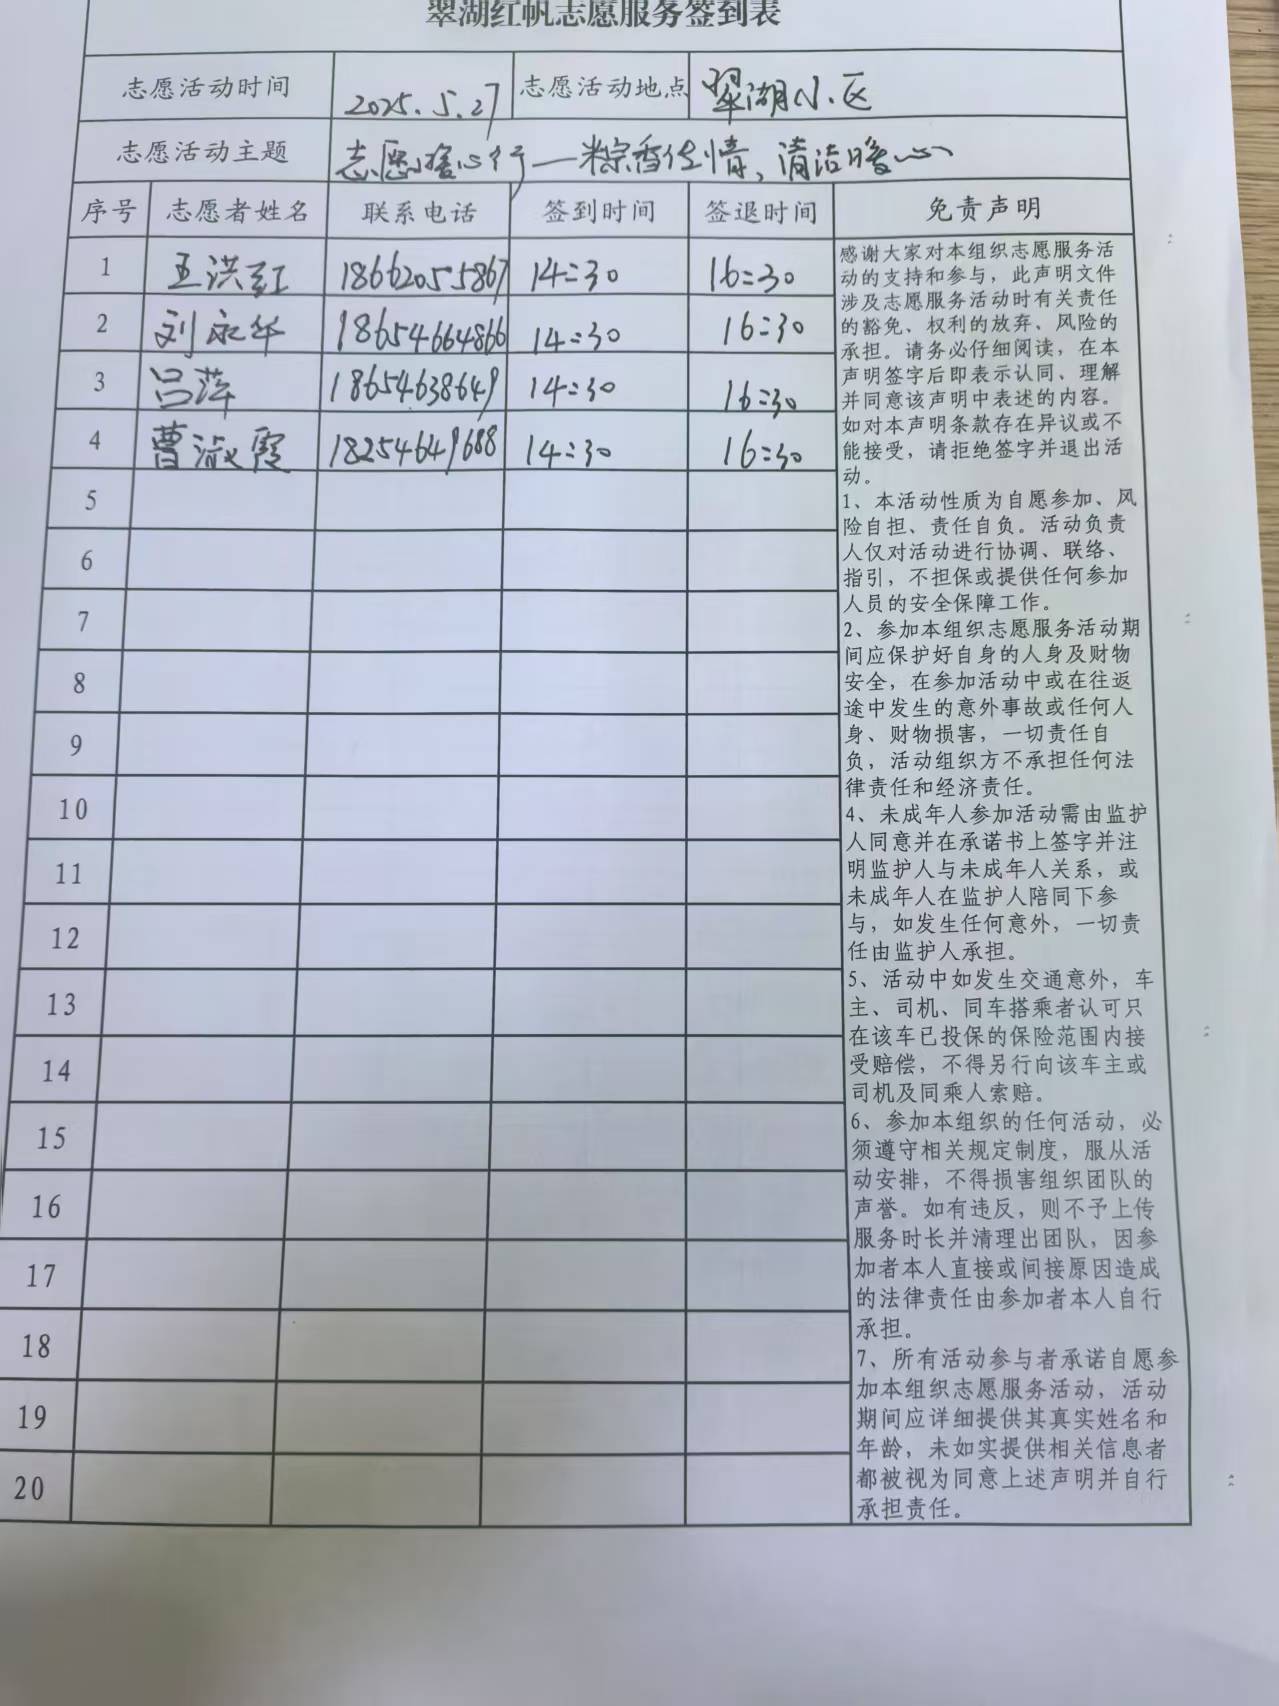 翠湖红帆志愿服务签到表
志愿活动时间 2025.5.27 志愿活动地点 翠湖小区
志愿活动主题 志愿暖心行——粽香传情、清洁暖心
序号 志愿者姓名 联系电话 签到时间 签退时间 免责声明
1 王洪红 18662055867 14:30 16:30
2 刘永华 18654664866 14:30 16:30
3 吕萍 18654638649 14:30 16:30
4 曹淑霞 18254649688 14:30 16:30
5
6
7
8
9
10
11
12
13
14
15
16
17
18
19
20
感谢大家对本组织志愿服务活
动的支持和参与，此声明文件
涉及志愿服务活动时有关责任
的豁免、权利的放弃、风险的
承担。请务必仔细阅读，在本
声明签字后即表示认同、理解
并同意该声明中表述的内容。
如对本声明条款存在异议或不
能接受，请拒绝签字并退出活
动。
1、本活动性质为自愿参加、风
险自担、责任自负。活动负责
人仅对活动进行协调、联络、
指引，不担保或提供任何参加
人员的安全保障工作。
2、参加本组织志愿服务活动期
间应保护好自身的人身及财物
安全，在参加活动中或在往返
途中发生的意外事故或任何人
身、财物损害，一切责任自
负，活动组织方不承担任何法
律责任和经济责任。
4、未成年人参加活动需由监护
人同意并在承诺书上签字并注
明监护人与未成年人关系，或
未成年人在监护人陪同下参
与，如发生任何意外，一切责
任由监护人承担。
5、活动中如发生交通意外，车
主、司机、同车搭乘者认可只
在该车已投保的保险范围内接
受赔偿，不得另行向该车主或
司机及同乘人索赔。
6、参加本组织的任何活动，必
须遵守相关规定制度，服从活
动安排，不得损害组织团队的
声誉。如有违反，则不予上传
服务时长并清理出团队，因参
加者本人直接或间接原因造成
的法律责任由参加者本人自行
承担。
7、所有活动参与者承诺自愿参
加本组织志愿服务活动，活动
期间应详细提供其真实姓名和
年龄，未如实提供相关信息者
都被视为同意上述声明并自行
承担责任。